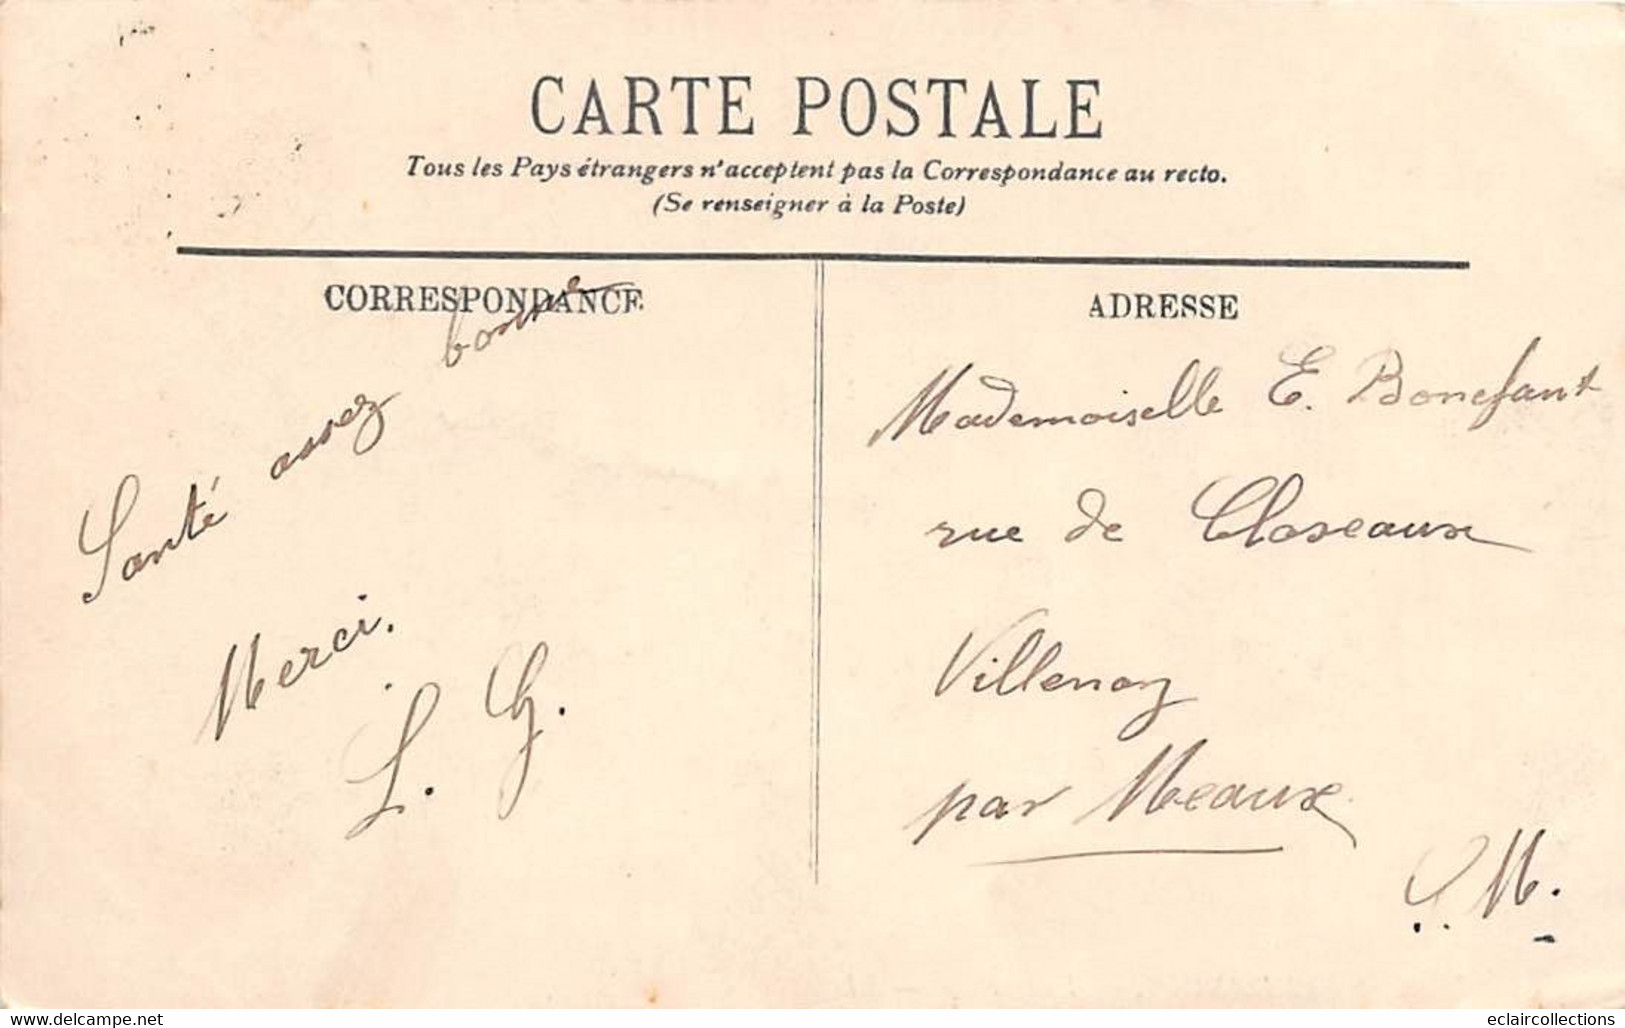 CARTE POSTALE
Tous les Pays étrangers n'acceptent pas la Correspondance au recto.
(Se renseigner à la Poste)
CORRESPONDANCE
Santé assez bonne
Merci.
L. G.
ADRESSE
Mademoiselle E. Bonefant
rue de Closeaux
Villenoy
par Meaux
S. M.
www.delcampe.net
eclaircollections